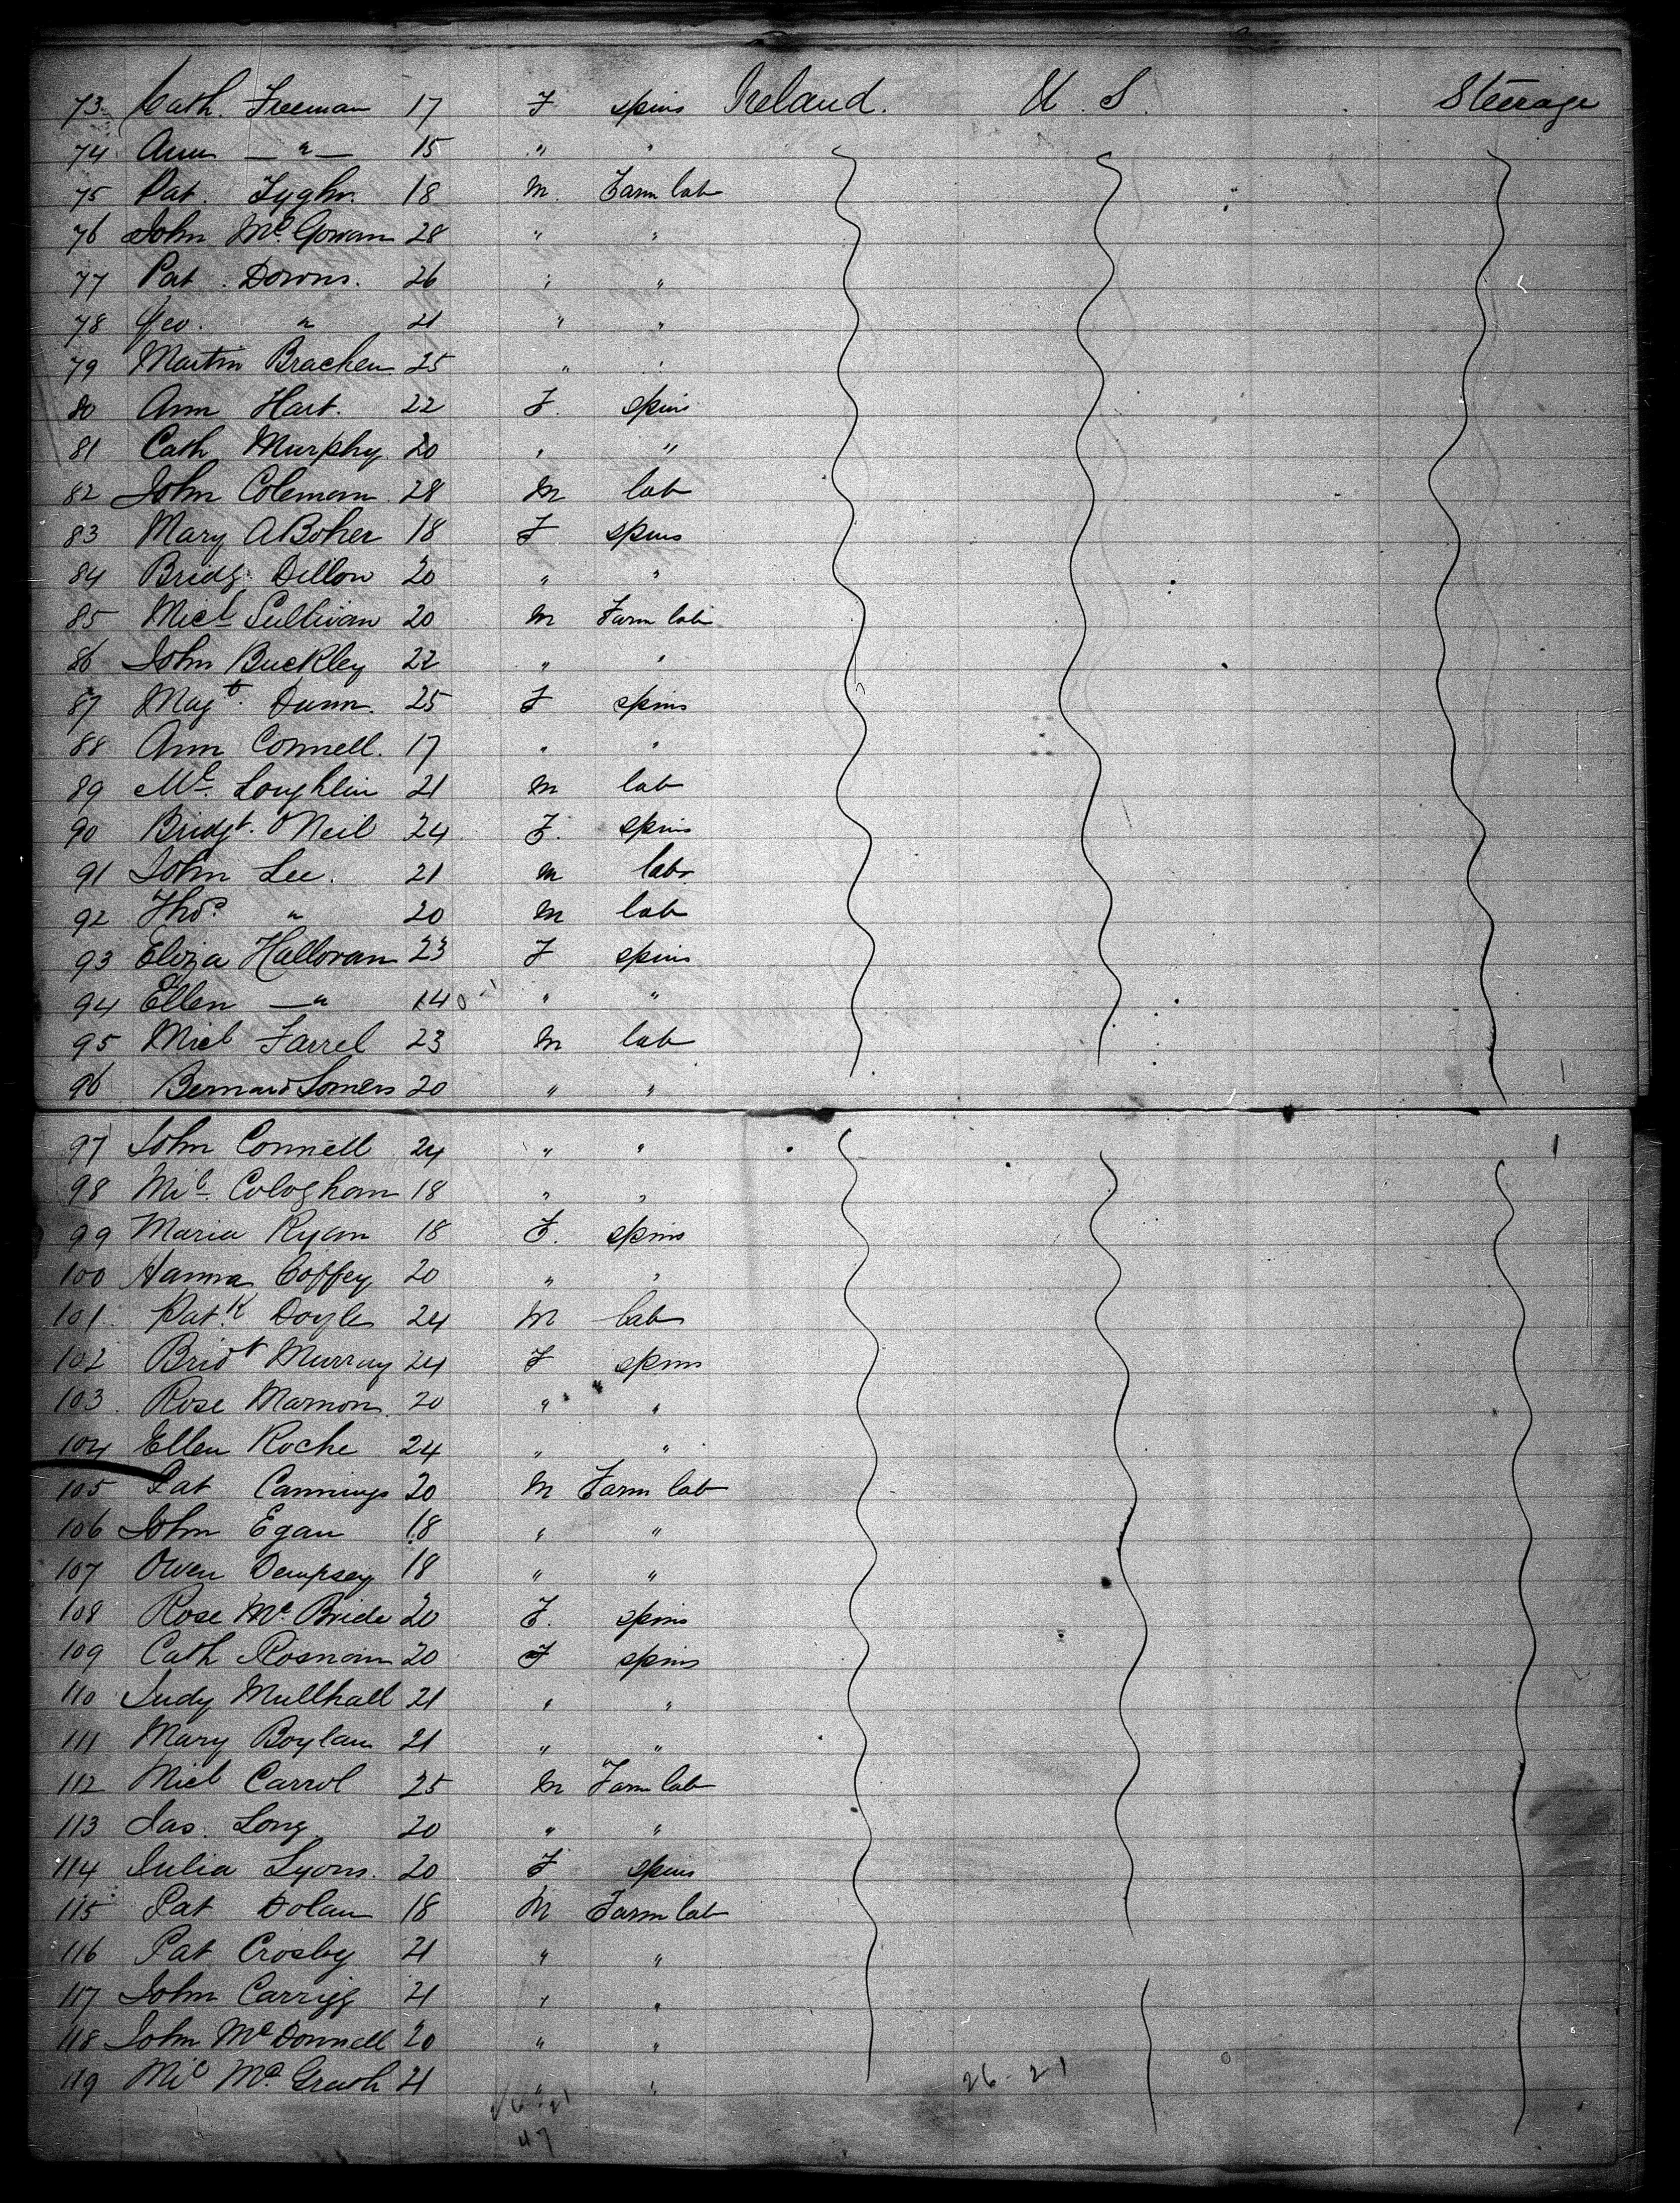 73 Cath. Freeman 17 F spins Ireland. U. S. Steerage
74 Ann — " — 15 " "
75 Pat. Tyghn. 18 M. Farm lab
76 John Mc. Gowan 28 " "
77 Pat. Downs. 26 " "
78 Geo. " 21 " "
79 Martin Bracken 25 " "
80 Ann Hart. 22 F. spins
81 Cath Murphy 20 " "
82 John Coleman 28 M lab
83 Mary A Boher 18 F spins
84 Bridg. Dillon 20 " "
85 Micl Sullivan 20 M Farm lab
86 John Buckley 22 " "
87 Magt. Dunn. 25 F spins
88 Ann Connell. 17 " "
89 Mc. Loughlin 21 M lab
90 Bridgt. O'Neil 24 F. spins
91 John Lee. 21 M labr
92 Thos " 20 M lab
93 Eliza Halloran 23 F spins
94 Ellen — " 14 " "
95 Micl Farrel 23 M lab
96 Bernard Somers 20 " "
97 John Connell 24 " "
98 Mil Cologhan 18 " "
99 Maria Ryan 18 F. spins
100 Hanna Coffey 20 " "
101. Patk Doyle 24 M lab
102 Bridt Murray 24 F spins
103. Rose 20 " "
104 Ellen Roche 24 " "
105 Pat Cannings 20 M Farm lab
106 John Egan 18 " "
107 Owen Dempsey 18 " "
108 Rose Mc. Bride 20 F. spins
109 Cath 20 F spins
110 Judy Mullhall 21 " "
111 Mary Boylan 21 " "
112 Micl Carrol 25 M Farm lab
113 Jas. Long 20 " "
114 Julia Lyons. 20 F spins
115 Pat Dolan 18 M Farm lab
116 Pat Crosby 21 " "
117 John Carrigg 21 " "
118 John McDonnell 20 " "
119 Mic Mc. Grath 21 " " 26 - 21
47